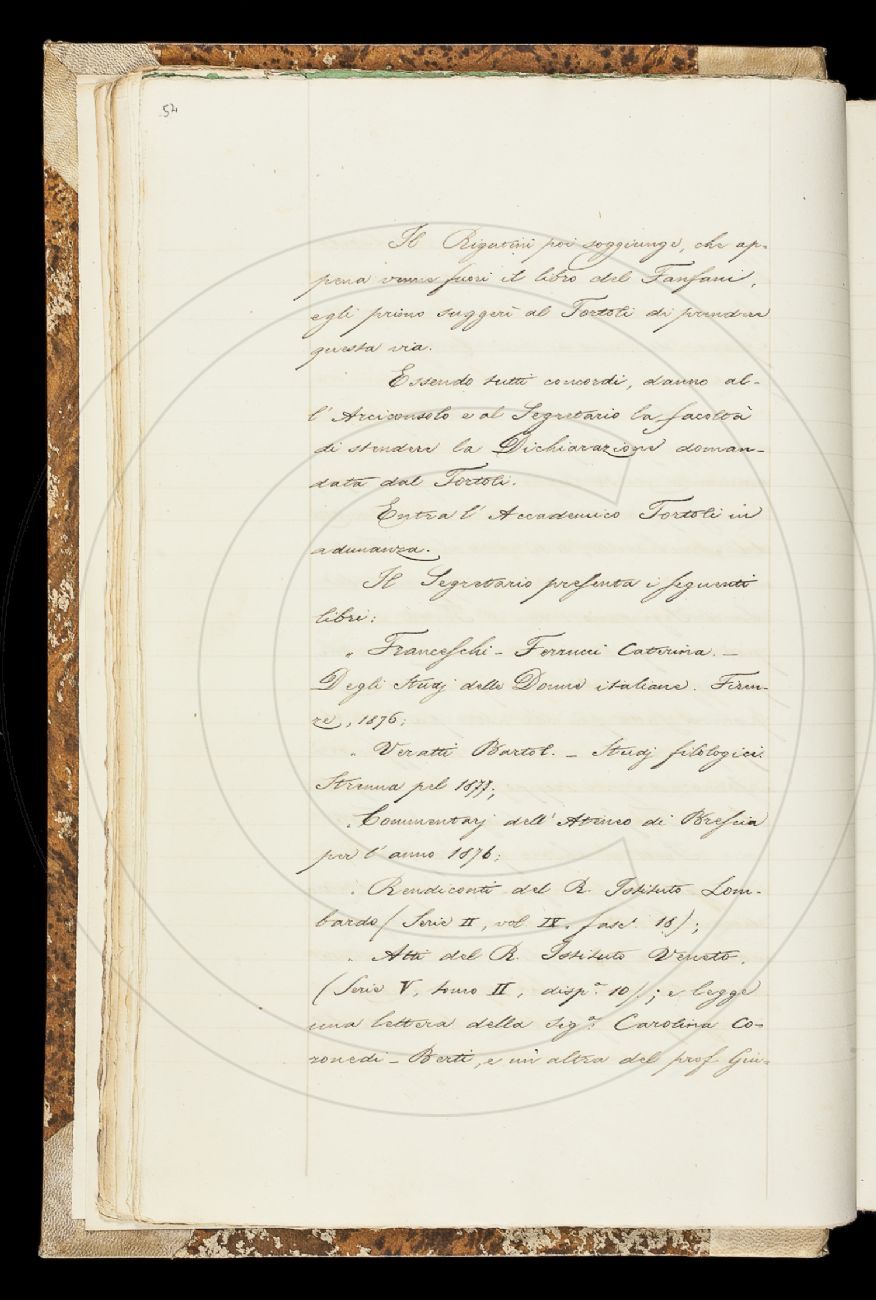 54
Il Rigutini poi soggiunge, che ap-
pena venne fuori il libro del Fanfani,
egli primo suggerì al Tortoli di prendere
questa via.
Essendo tutti concordi, danno al-
l'Arciconsolo e al Segretario la facoltà
di stendere la Dichiarazione doman-
data dal Tortoli.
Entra l'Accademico Tortoli in
adunanza.
Il Segretario presenta i seguenti
libri:
" Franceschi - Ferrucci Caterina. -
Degli Studj delle Donne italiane. Firen-
ze, 1876;
" Veratti Bartol. - Studj filologici.
Strenna pel 1877;
" Commentarj dell'Ateneo di Brescia
per l'anno 1876;
" Rendiconti del R. Istituto Lom-
bardo (Serie II, vol. IX, fasc. 18);
" Atti del R. Istituto Veneto.
(Serie V, tomo II, disp.ª 10).; e legge
una lettera della Sig.ª Carolina Co-
ronedi - Berti, e un'altra del prof. Giu-